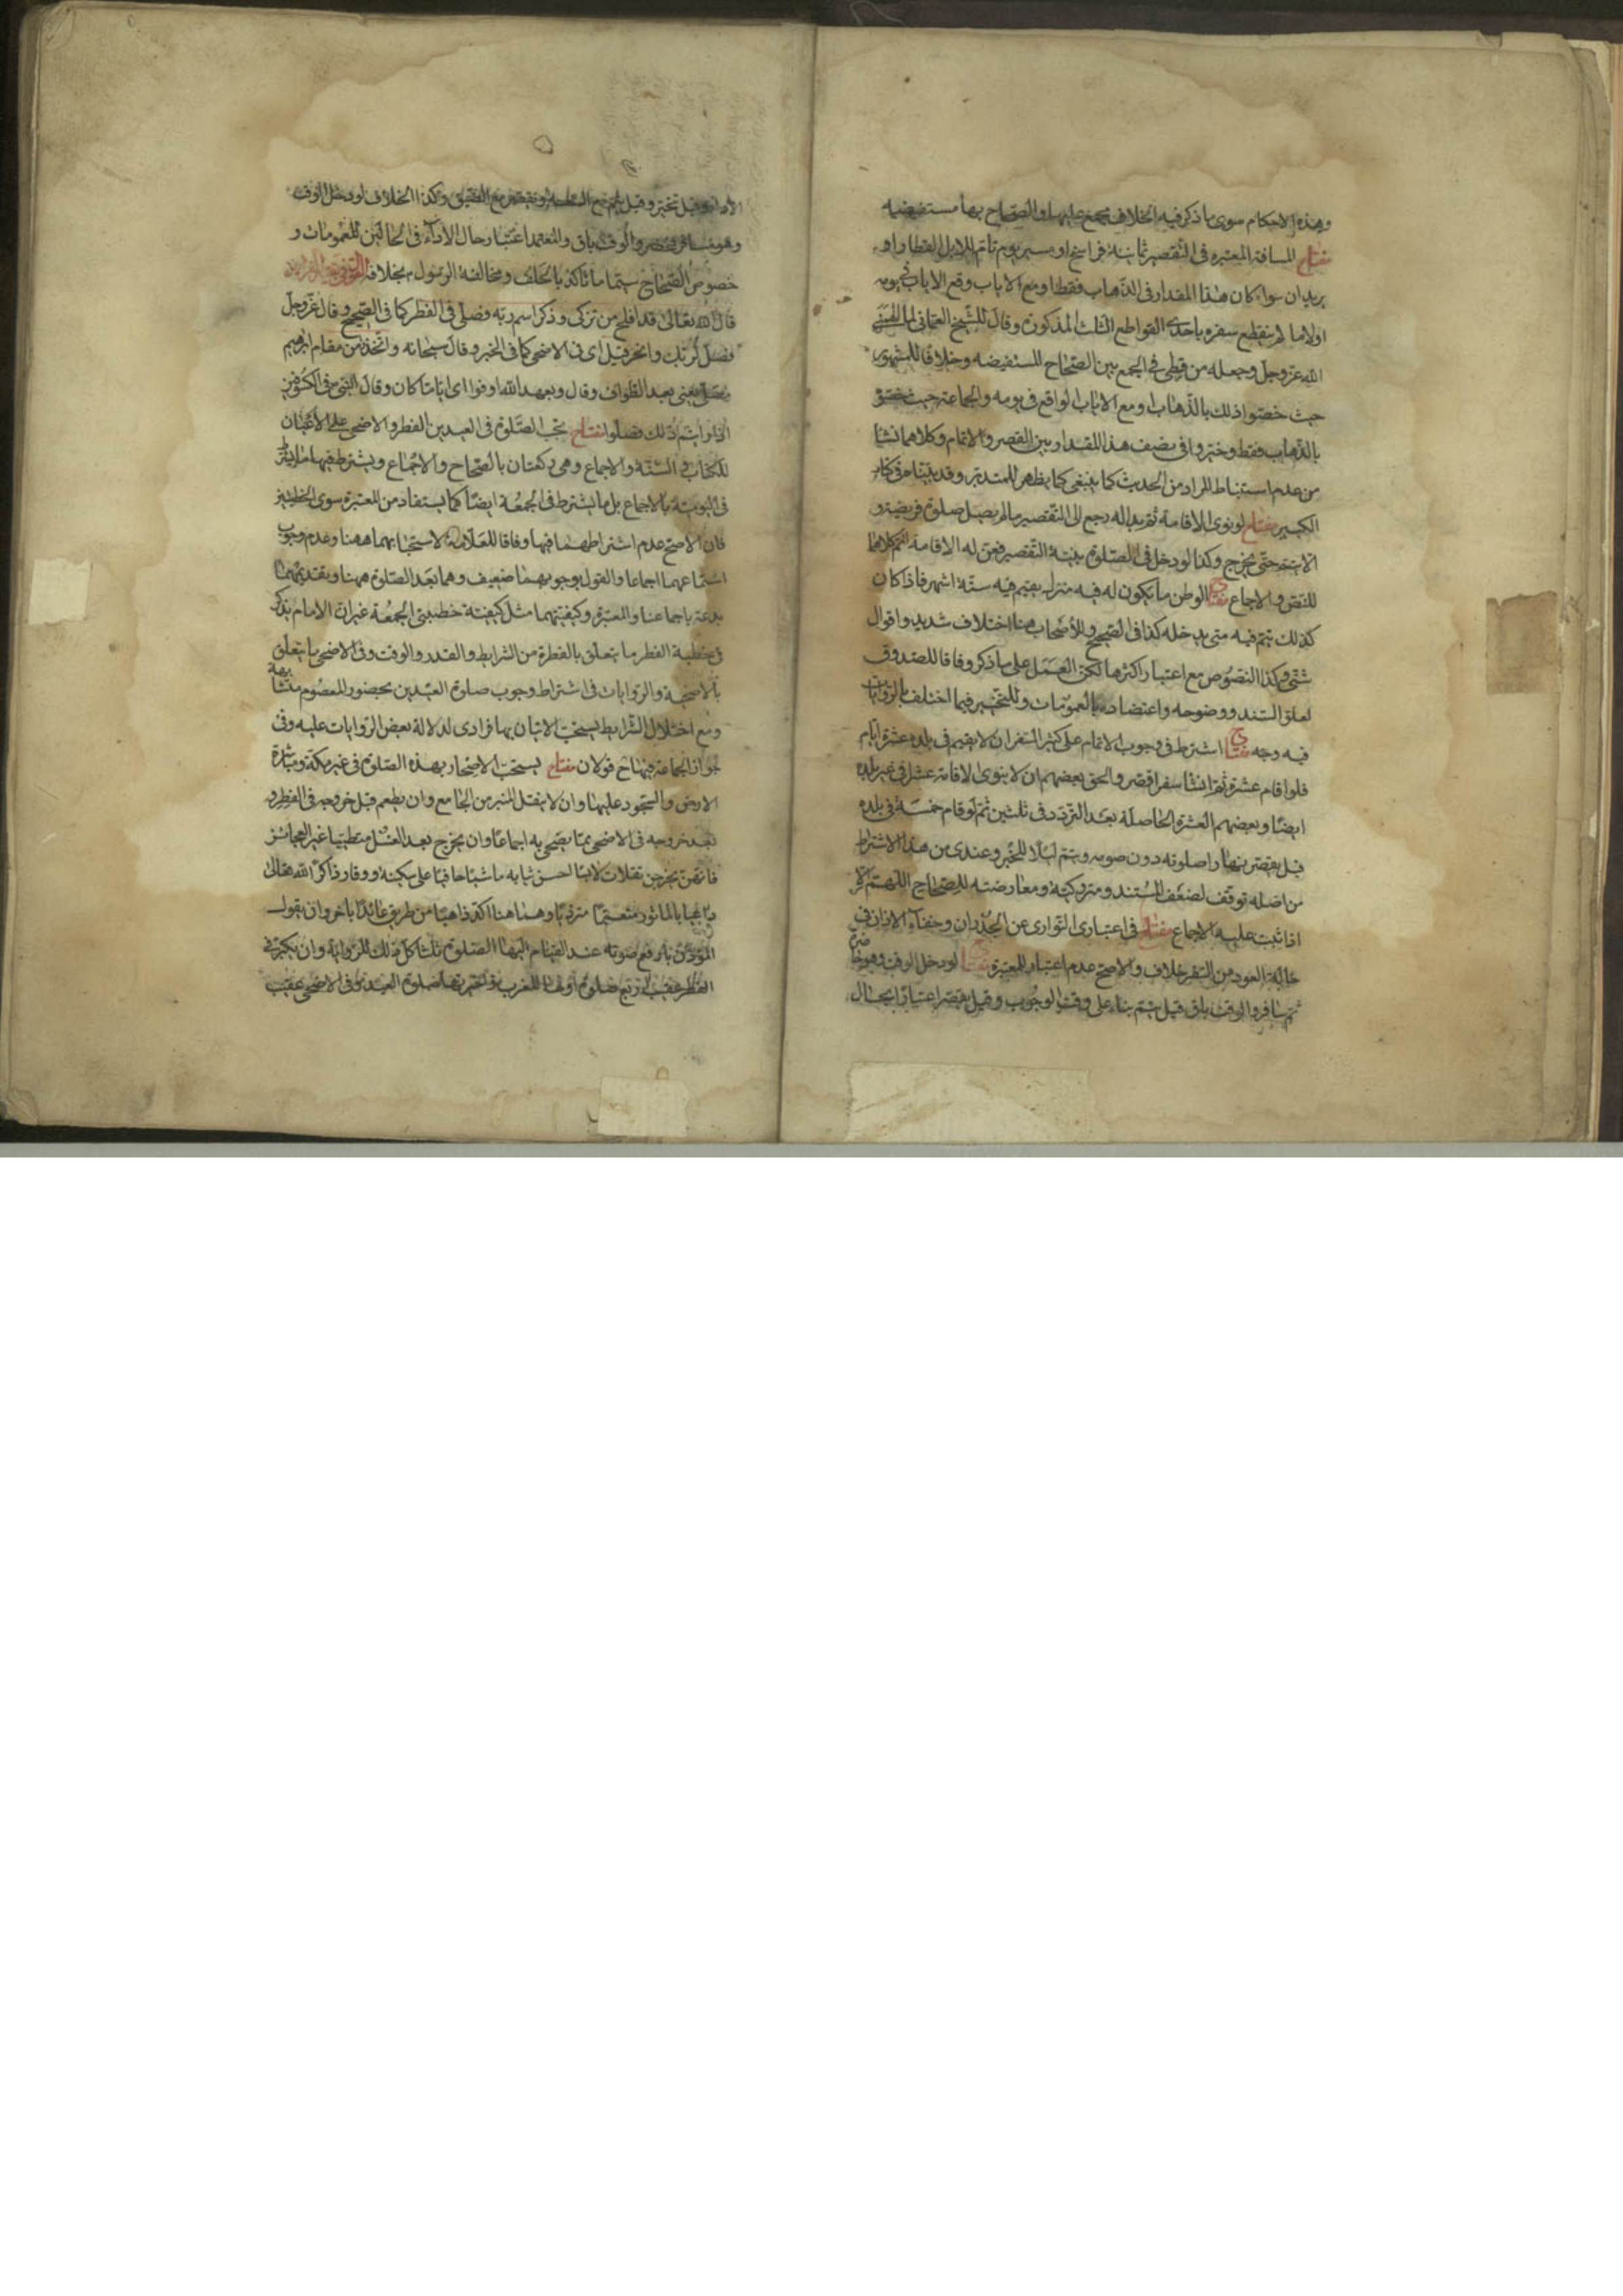 وهذه الاحكام سوى ما ذكر فيه الخلاف مجمع عليها والصحاح بها مستفيضه
مفتاح المسافة المعتبره فى التقصير ثمانية فراسخ او مسير يوم تام للابل القطار او
بريدان سواء كان هذا المقدار فى الذهاب فقط او مع الاياب وقع الاياب فى يومه
اولا ما لم ينقطع سفره باحدى القواطع الثلث المذكورة وفاقا للشيخ العمانى لما الهمنى
الله عز وجل وجعله من قسطى فى الجمع بين الصحاح المستفيضه وخلافا للمشهور
حيث خصوا ذلك بالذهاب او مع الاياب الواقع فى يومه والجماعة حيث خصوه
بالذهاب فقط وخيروا فى نصف هذا المقدار بين القصر والاتمام وكلاهما نشا
من عدم استنباط المراد من الحديث كما ينبغى كما يظهر للمتدبر وقد بيناه فى كتابنا
الكبير مفتاح لو نوى الاقامة ثم بدا له رجع الى التقصير ما لم يصل صلوة فريضة و
الا يتم حتى يخرج وكذا لو دخل فى الصلوة بنية التقصير فعن له الاقامة اتم كلاهما
للنص والاجماع مفتاح الوطن ما يكون له فيه منزل يقيم فيه ستة اشهر فاذا كان
كذلك يتم فيه متى يدخله كذا فى الصحيح وللاصحاب هنا اختلاف شديد واقوال
شتى وكذا النصوص مع اعتبار اكثرها لكن العمل على ما ذكر وفاقا للصدوق
لعلو السند ووضوحه واعتضاده بالعمومات وللتخيير فيما اختلف بالروايات
فيه وجه مفتاح اشترط فى وجوب الاتمام على كثير السفر ان لا يقيم فى بلده عشرة ايام
فلو اقام عشرة ثم انشا سفرا قصر والحق بعضهم ان لا ينوى الاقامة عشرا فى غير بلده
ايضا وبعضهم العشرة الحاصلة بعد التردد فى ثلثين ثم لو اقام خمسة فى بلده
قيل يقصر نهارا صلوته دون صومه ويتم ليلا للخبر وعندى من هذا الاشتراط
من اصله توقف لضعف المستند ومتروكيته ومعارضته للصحاح اللهم الا
اذا ثبت عليه الاجماع مفتاح فى اعتبار التوارى عن الجدران وخفاء الاذان فى
حالة العود من السفر خلاف والاصح عدم اعتبار للمعتبرة مفتاح لو دخل الوقت وهو حاضر
ثم سافر والوقت باق قيل يتم بناء على وقت الوجوب وقيل يقصر اعتبارا بحال
الاداء وقيل تخير وقيل يتم مع السعة ويقصر مع الضيق وكذا الخلاف لو دخل الوقت
وهو مسافر فحضر والوقت باق والمعتمد اعتبار حال الاداء فى الحالتين للعمومات و
خصوص الصحاح سيما ما تاكد بالحلف ومخالفة الرسول بخلافه
قال الله تعالى قد افلح من تزكى وذكر اسم ربه فصلى فى الفطر كما فى الصحيح وقال عز وجل
فصل لربك وانحر قيل اى فى الاضحى كما فى الخبر وقال سبحانه واتخذوا من مقام ابرهيم
مصلى يعنى بعد الطواف وقال وبعهد الله اوفوا اى اياما كان وقال النبى فى الكسوفين
اذا رايتم ذلك فصلوا مفتاح تجب الصلوة فى العيدين الفطر والاضحى على الاعيان
للكتاب والسنة والاجماع وهى ركعتان بالصحاح والاجماع ويشترط فيها ما يشترط
فى اليومية بالاجماع بل ما يشترط فى الجمعة ايضا كما يستفاد من المعتبرة سوى الخطبتين
فان الاصح عدم اشتراطهما فيها وفاقا للعلامة لاستحبابهما ههنا وعدم وجوب
استماعهما اجماعا والقول بوجوبهما ضعيف وهما بعد الصلوة ههنا وتقديمهما
بدعة باجماعنا والمعتبرة وكيفيتهما مثل كيفية خطبتى الجمعة غير ان الامام يذكر
فى خطبة الفطر ما يتعلق بالفطرة من الشرايط والقدر والوقت وفى الاضحى ما يتعلق
بالاضحية والروايات فى اشتراط وجوب صلوة العيدين بحضور المعصوم متشابهة
ومع اختلال الشرايط يستحب الاتيان بها فرادى لدلالة بعض الروايات عليه وفى
جواز الجماعة فيها ح قولان مفتاح يستحب الاصحار بهذه الصلوة فى غير مكة ومباشرة
الارض والسجود عليها وان لا ينقل المنبر من الجامع وان يطعم قبل خروجه فى الفطر و
بعد خروجه فى الاضحى مما يضحى به اجماعا وان يخرج بعد الغسل متطيبا غير العجائز
فانهن يخرجن تفلات لابسا احسن ثيابه ماشيا حافيا على سكينة ووقار ذاكرا لله تعالى
داعيا بالماثور متعمما مترديا وهما هنا اكد ذاهبا من طريق عائدا باخر وان يقول
المؤذن بارفع صوته عند القيام اليها الصلوة ثلثا كل ذلك للرواية وان يكبر فى
الفطر عقيب اربع صلوة اولها المغرب واخرها صلوة العيد وفى الاضحى عقيب